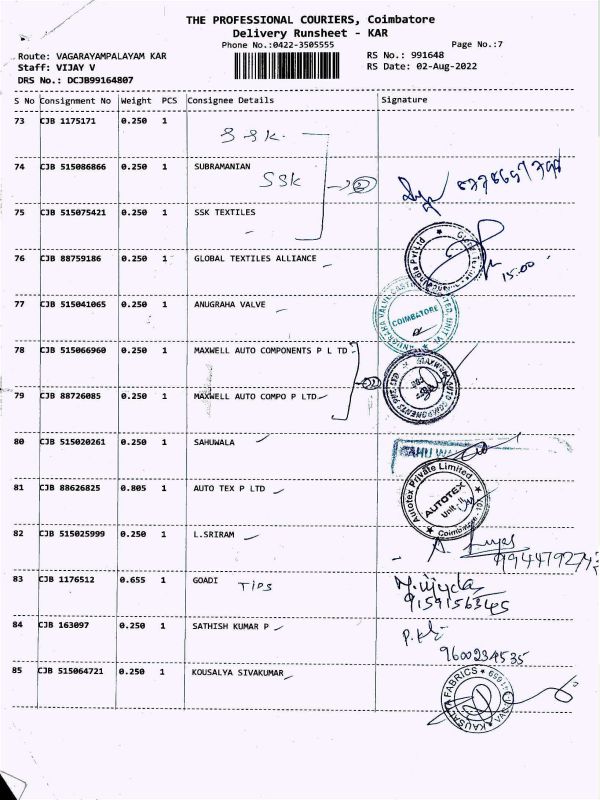 THE PROFESSIONAL COURIERS, Coimbatore
Delivery Runsheet - KAR
Phone No.:0422-3505555
Page No.:7
Route: VAGARAYAMPALAYAM KAR
RS No.: 991648
Staff: VIJAY V
RS Date: 02-Aug-2022
DRS No.: DCJB99164807
S No Consignment No Weight PCS Consignee Details Signature
73 CJB 1175171 0.250 1
SSK.
74 CJB 515086866 0.250 1 SUBRAMANIAN
SSK
2
75 CJB 515075421 0.250 1 SSK TEXTILES
76 CJB 88759186 0.250 1 GLOBAL TEXTILES ALLIANCE
15:00
77 CJB 515041065 0.250 1 ANUGRAHA VALVE
COIMBATORE
78 CJB 515066960 0.250 1 MAXWELL AUTO COMPONENTS P L TD
79 CJB 88726085 0.250 1 MAXWELL AUTO COMPO P LTD
2
80 CJB 515020261 0.250 1 SAHUWALA
81 CJB 88626825 0.805 1 AUTO TEX P LTD
Autotex Private Limited
AUTOTEX
Unit-II
Coimbatore
82 CJB 515025999 0.250 1 L.SRIRAM
83 CJB 1176512 0.655 1 GOADI
TIPS
9159156345
84 CJB 163097 0.250 1 SATHISH KUMAR P
9600234535
85 CJB 515064721 0.250 1 KOUSALYA SIVAKUMAR
FABRICS